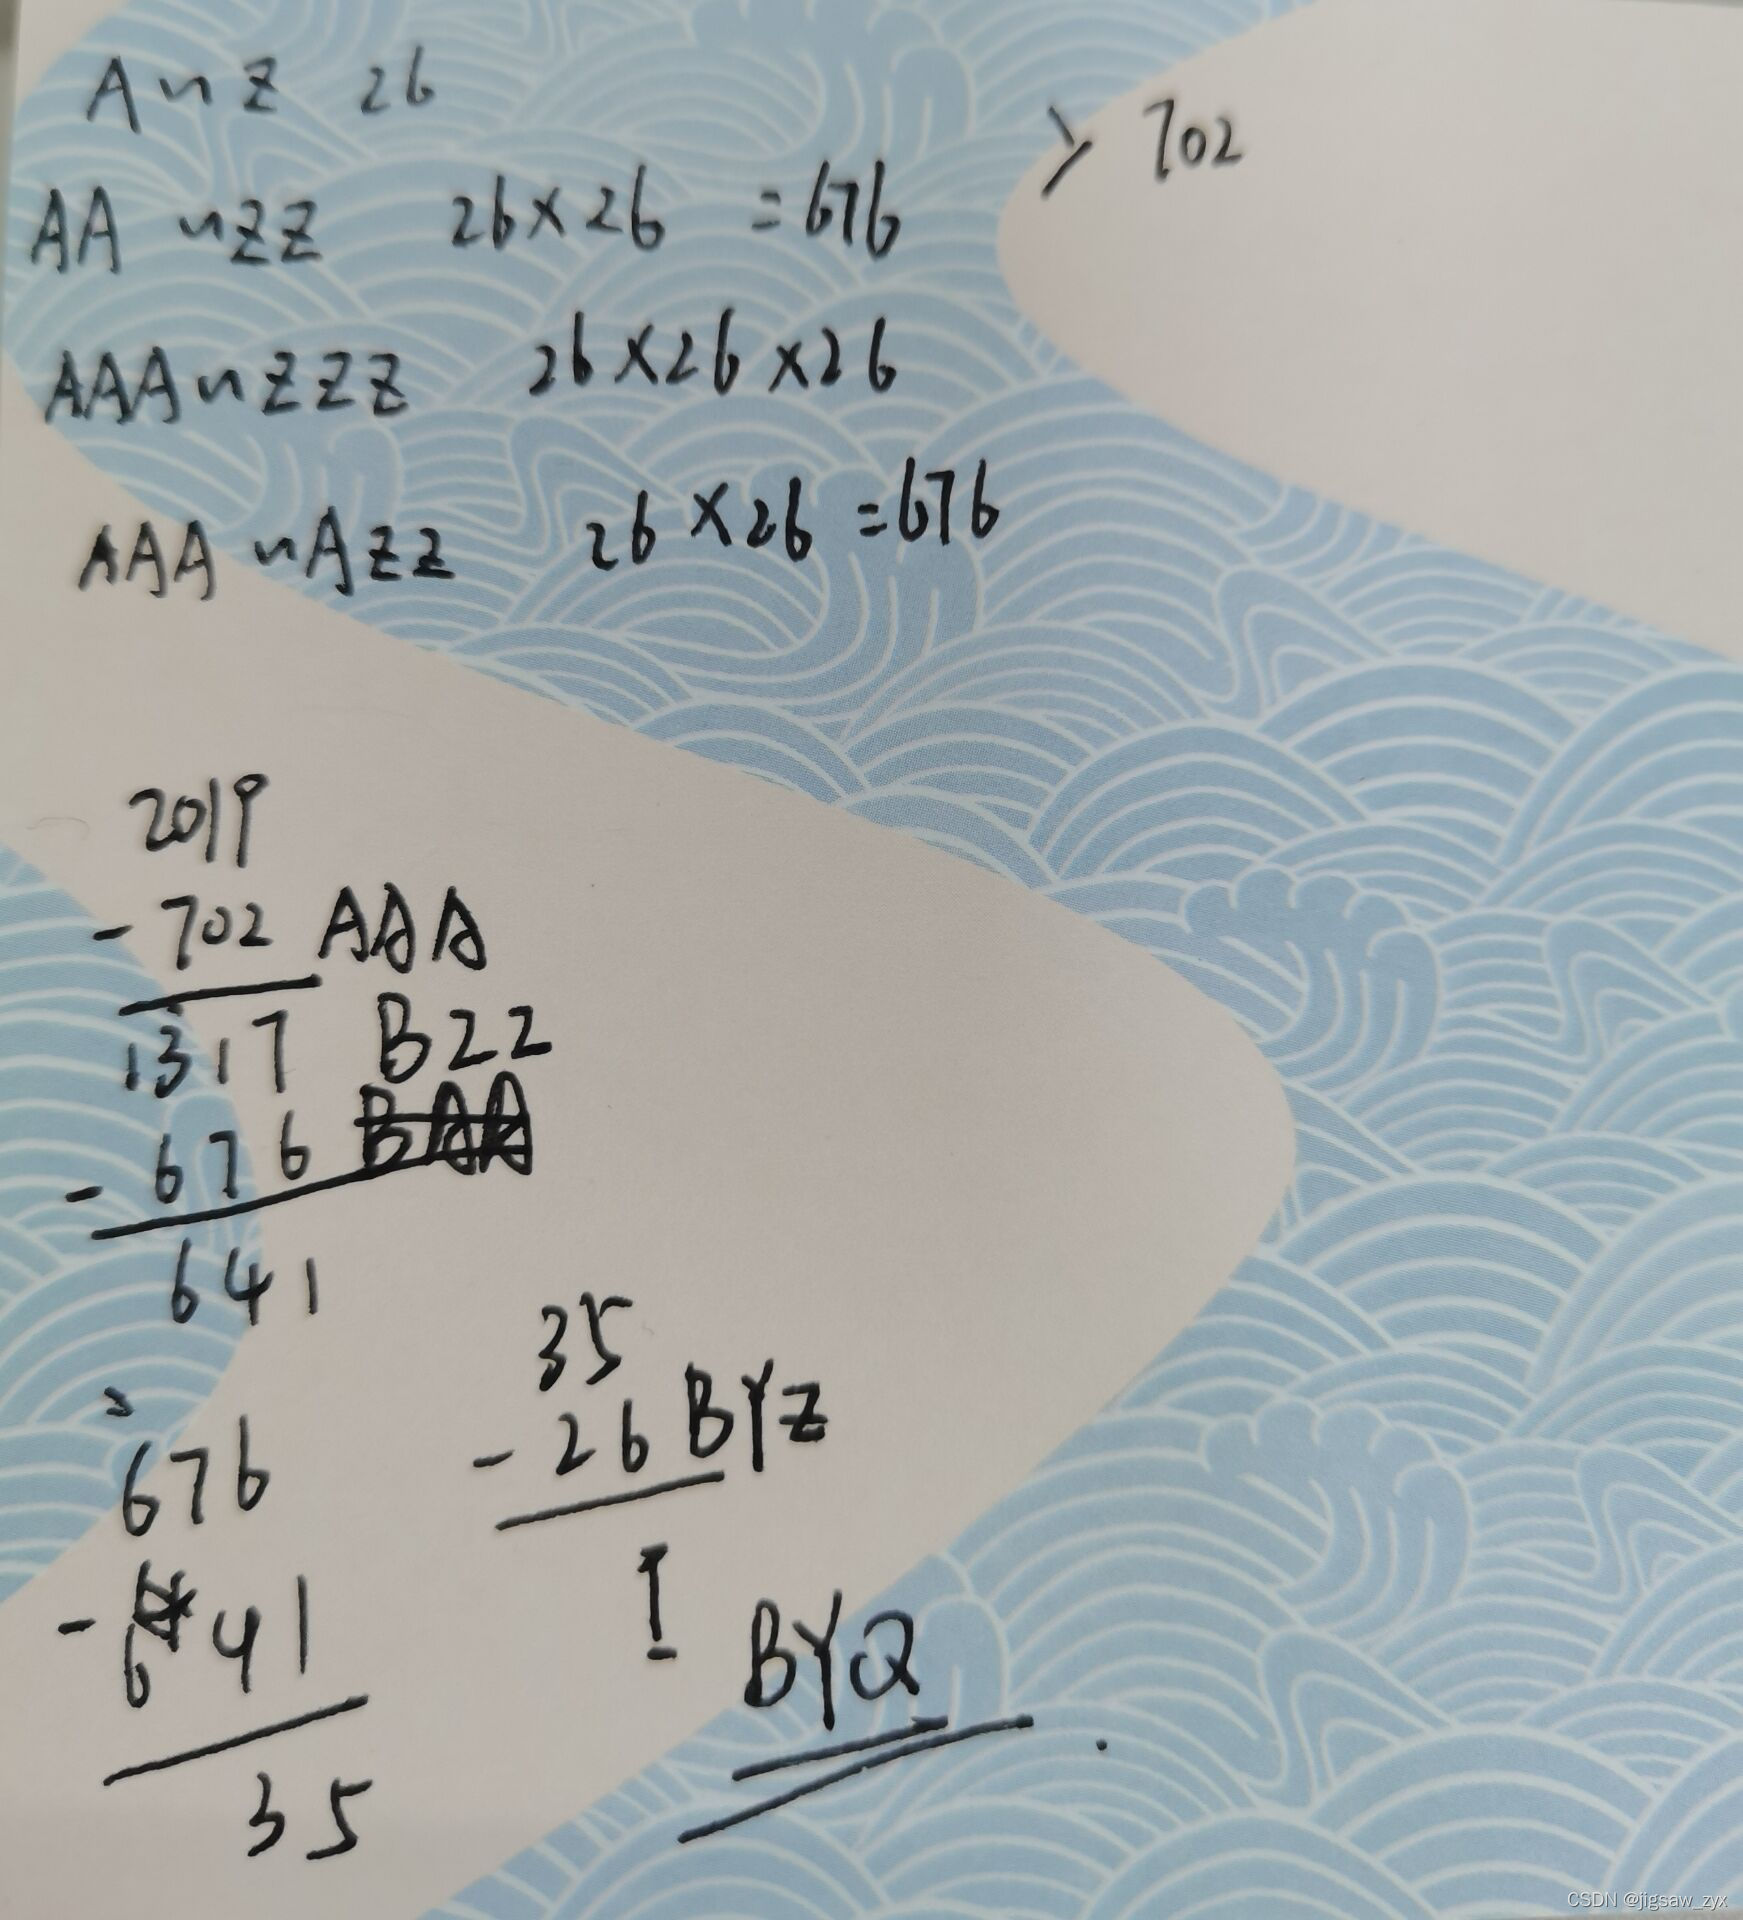 A ~ Z 26
> 702
AA ~ ZZ 26×26 =676
AAA ~ ZZZ 26×26×26
AAA ~ AZZ 26×26 =676
2019
-702 AAA
1317 BZZ
-676
641
35
-26 BYZ
676
-641
BYQ
35
CSDN @jigsaw_zyx